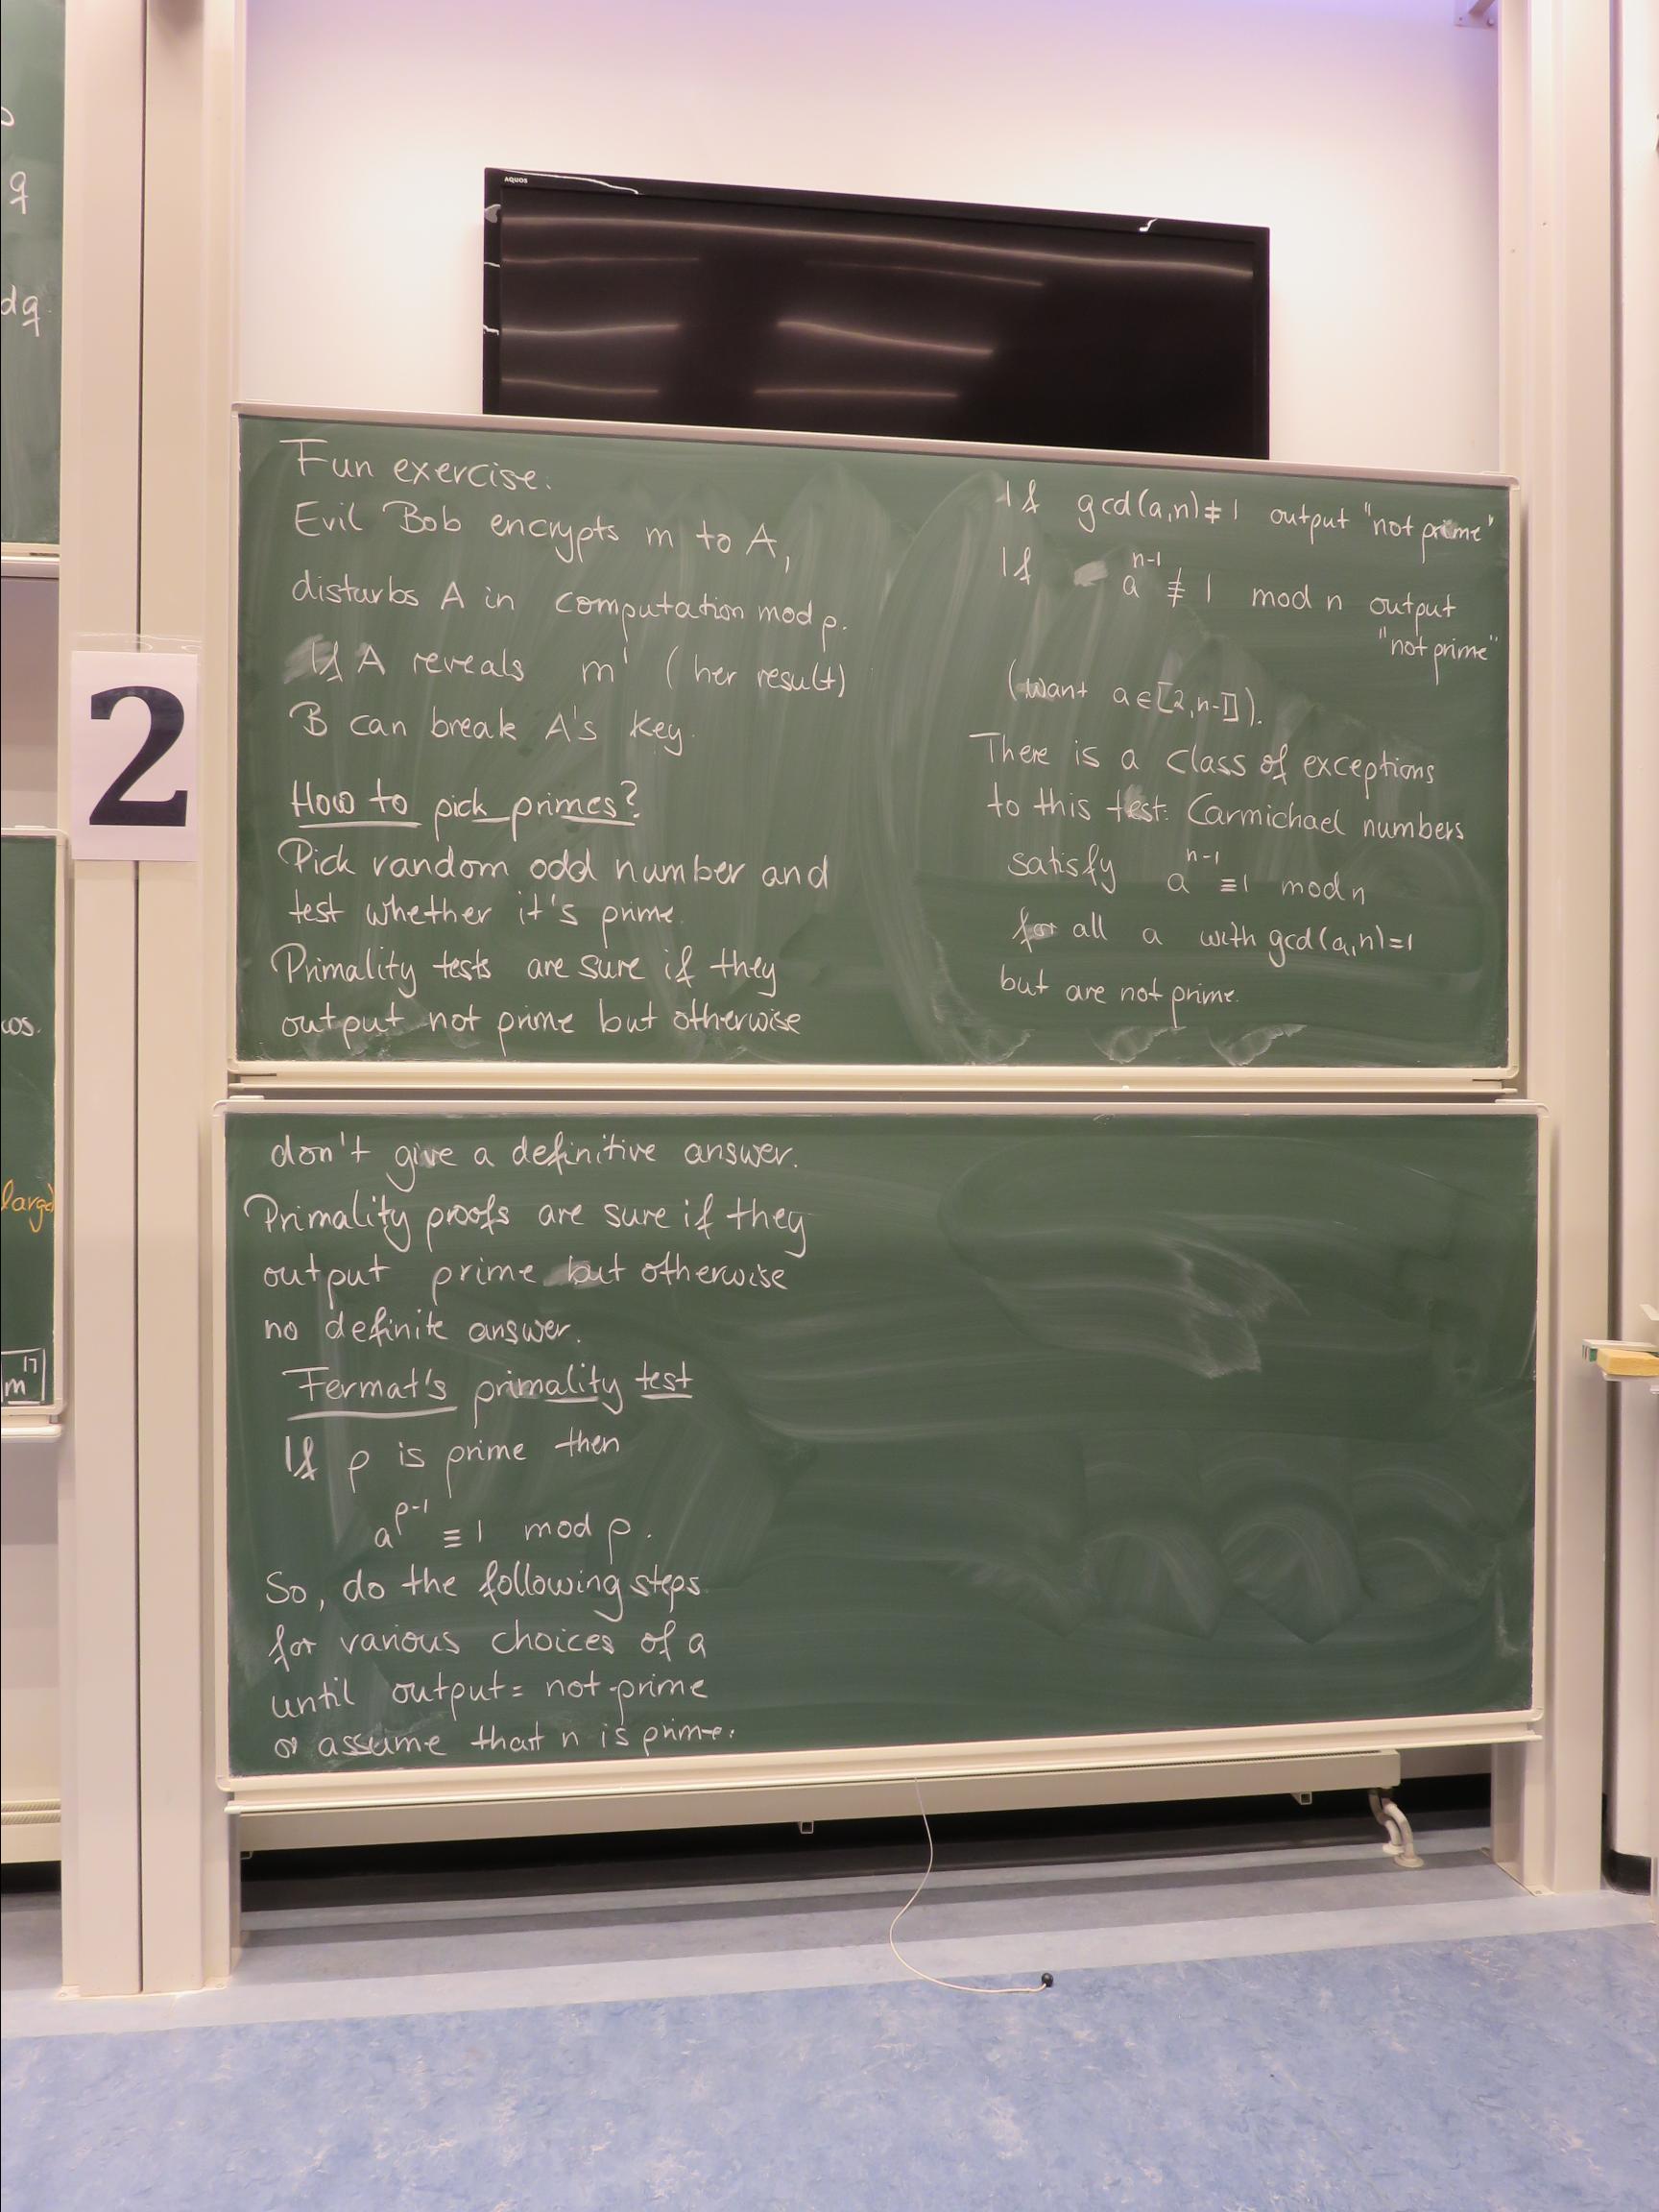 AQUOS
q
dq
2
cos.
large
m^17
Fun exercise.
Evil Bob encrypts m to A,
disturbs A in computation mod p.
If A reveals m' (her result)
B can break A's key.
How to pick primes?
Pick random odd number and
test whether it's prime.
Primality tests are sure if they
output not prime but otherwise
don't give a definitive answer.
Primality proofs are sure if they
output prime but otherwise
no definite answer.
Fermat's primality test
If p is prime then
a^{p-1} ≡ 1 mod p.
So, do the following steps
for various choices of a
until output = not prime
or assume that n is prime:
If gcd(a,n) ≠ 1 output "not prime"
If a^{n-1} ≢ 1 mod n output
"not prime"
(want a ∈ [2, n-1]).
There is a class of exceptions
to this test: Carmichael numbers
satisfy a^{n-1} ≡ 1 mod n
for all a with gcd(a,n)=1
but are not prime.